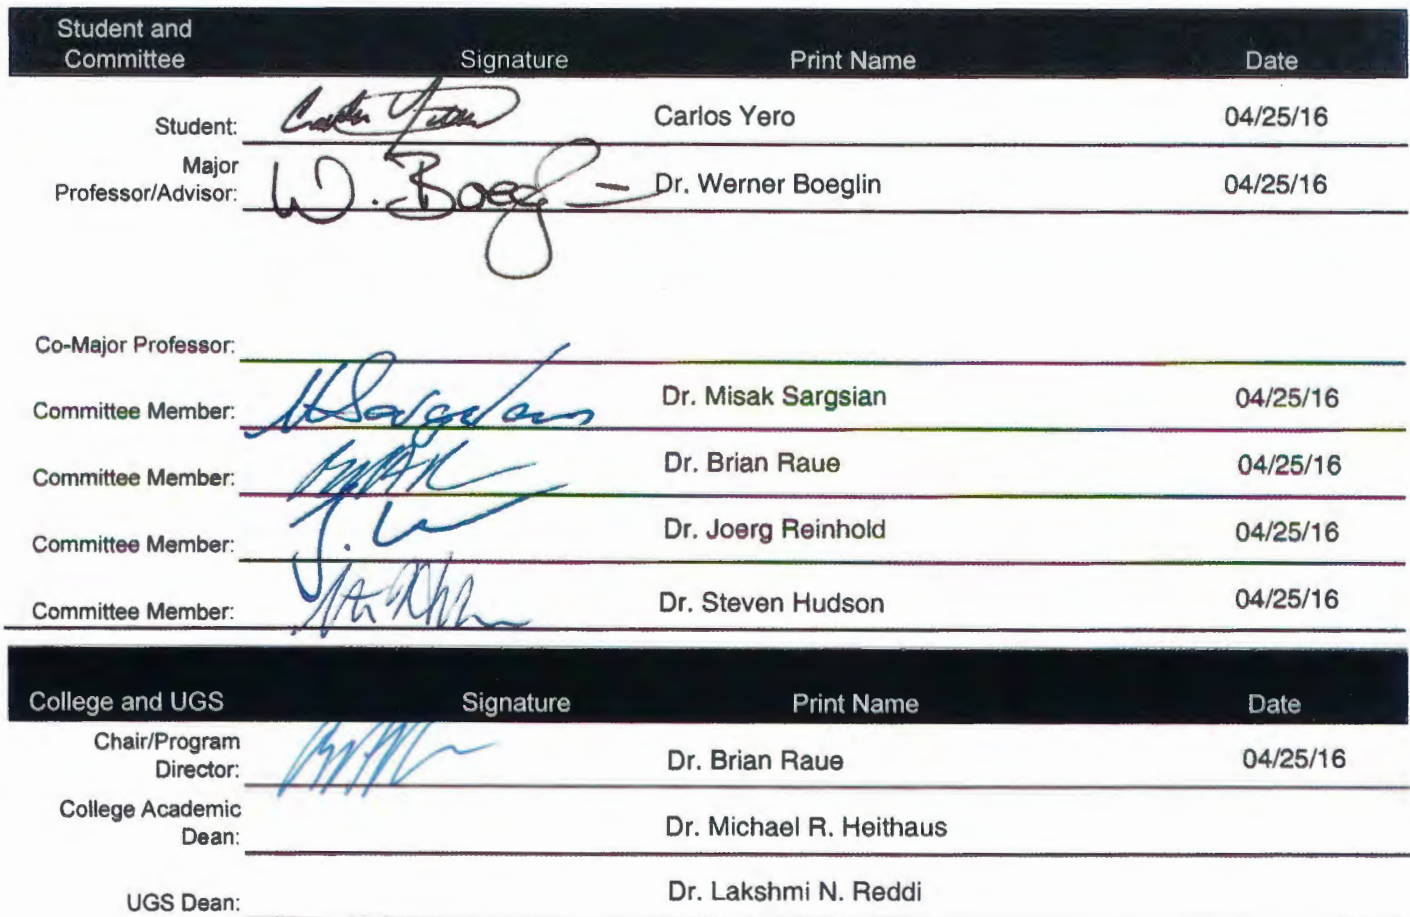 Student and
Committee Signature Print Name Date
Student: Carlos Yero 04/25/16
Major
Professor/Advisor: W. Boeglin Dr. Werner Boeglin 04/25/16
Co-Major Professor:
Committee Member: Dr. Misak Sargsian 04/25/16
Committee Member: Dr. Brian Raue 04/25/16
Committee Member: Dr. Joerg Reinhold 04/25/16
Committee Member: Dr. Steven Hudson 04/25/16
College and UGS Signature Print Name Date
Chair/Program
Director: Dr. Brian Raue 04/25/16
College Academic
Dean: Dr. Michael R. Heithaus
UGS Dean: Dr. Lakshmi N. Reddi